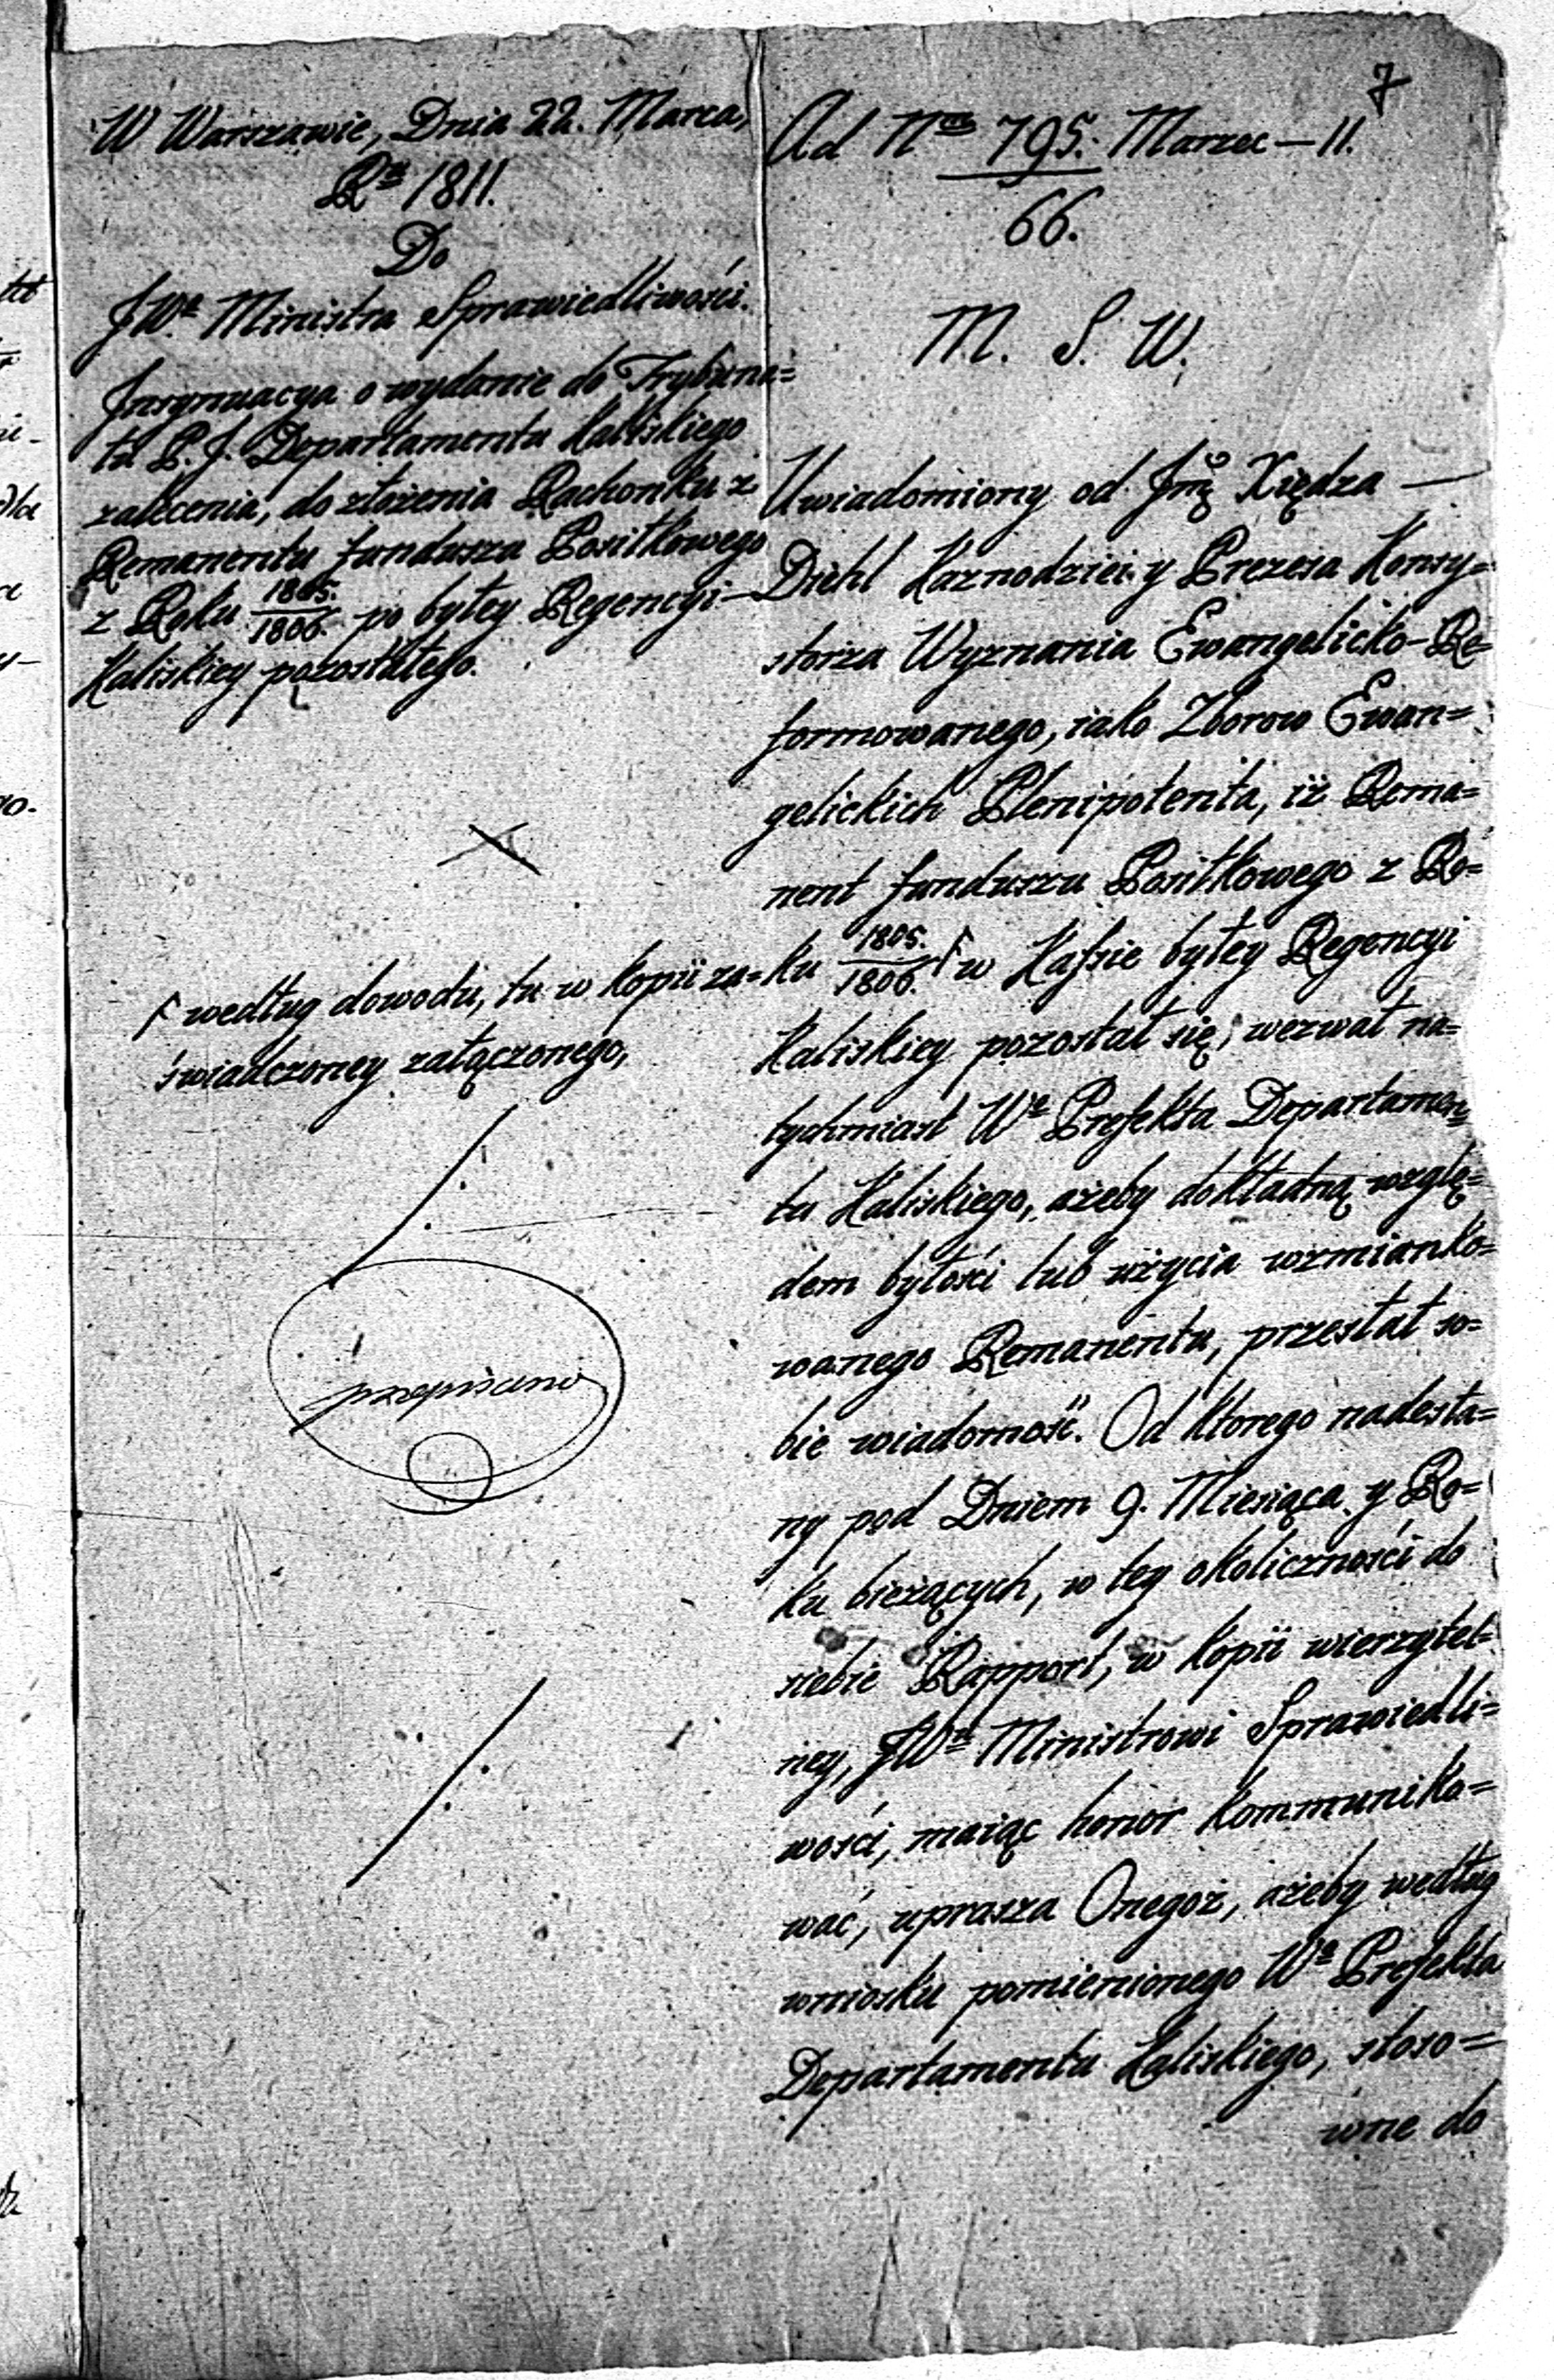 7
W Warszawie, Dnia 22. Marca,
Ra 1811.
Do
JWo. Ministra Sprawiedliwości.
Insynuacya o wydanie do Trybuna=
łu P. J. Departamentu Kaliskiego
zalecenia, do złożenia Rachonku z
Remanentu funduszu Posiłkowego
z Roku 1805./1806. po byłey Regencyi
Kaliskiey pozostałego.
według dowodu, tu w kopii za=
świadczoney załączonego,
przepisano
Ad Nrum 795. Marzec – 11.
66.
M. S. W.
Uwiadomiony od Xiędza —
Diehl Kaznodziei y Prezesa Konsy=
storza Wyznania Ewangelicko-Re=
formowanego, iako Zborow Ewan=
gelickich Plenipotenta, iż Rema=
nent funduszu Posiłkowego z Ro=
ku 1805./1806. w Kassie byłey Regencyi
Kaliskiey pozostał się, wezwał na=
tychmiast Wo Prefekta Departamen=
tu Kaliskiego, ażeby dokładną wzglę=
dem byłości lub użycia wzmianko=
wanego Remanentu, przesłał so=
bie wiadomość. Od ktorego nadesła=
ny pod Dniem 9. Miesiąca y Ro=
ku bieżących, w tey okoliczności do
siebie Rapport, w kopii wierzytel=
ney, JWu Ministrowi Sprawiedli=
wości, maiąc honor kommuniko=
wać, uprasza Onegoż, ażeby według
wniosku pomienionego Wo Prefekta
Departamentu Kaliskiego, stoso=
wne do